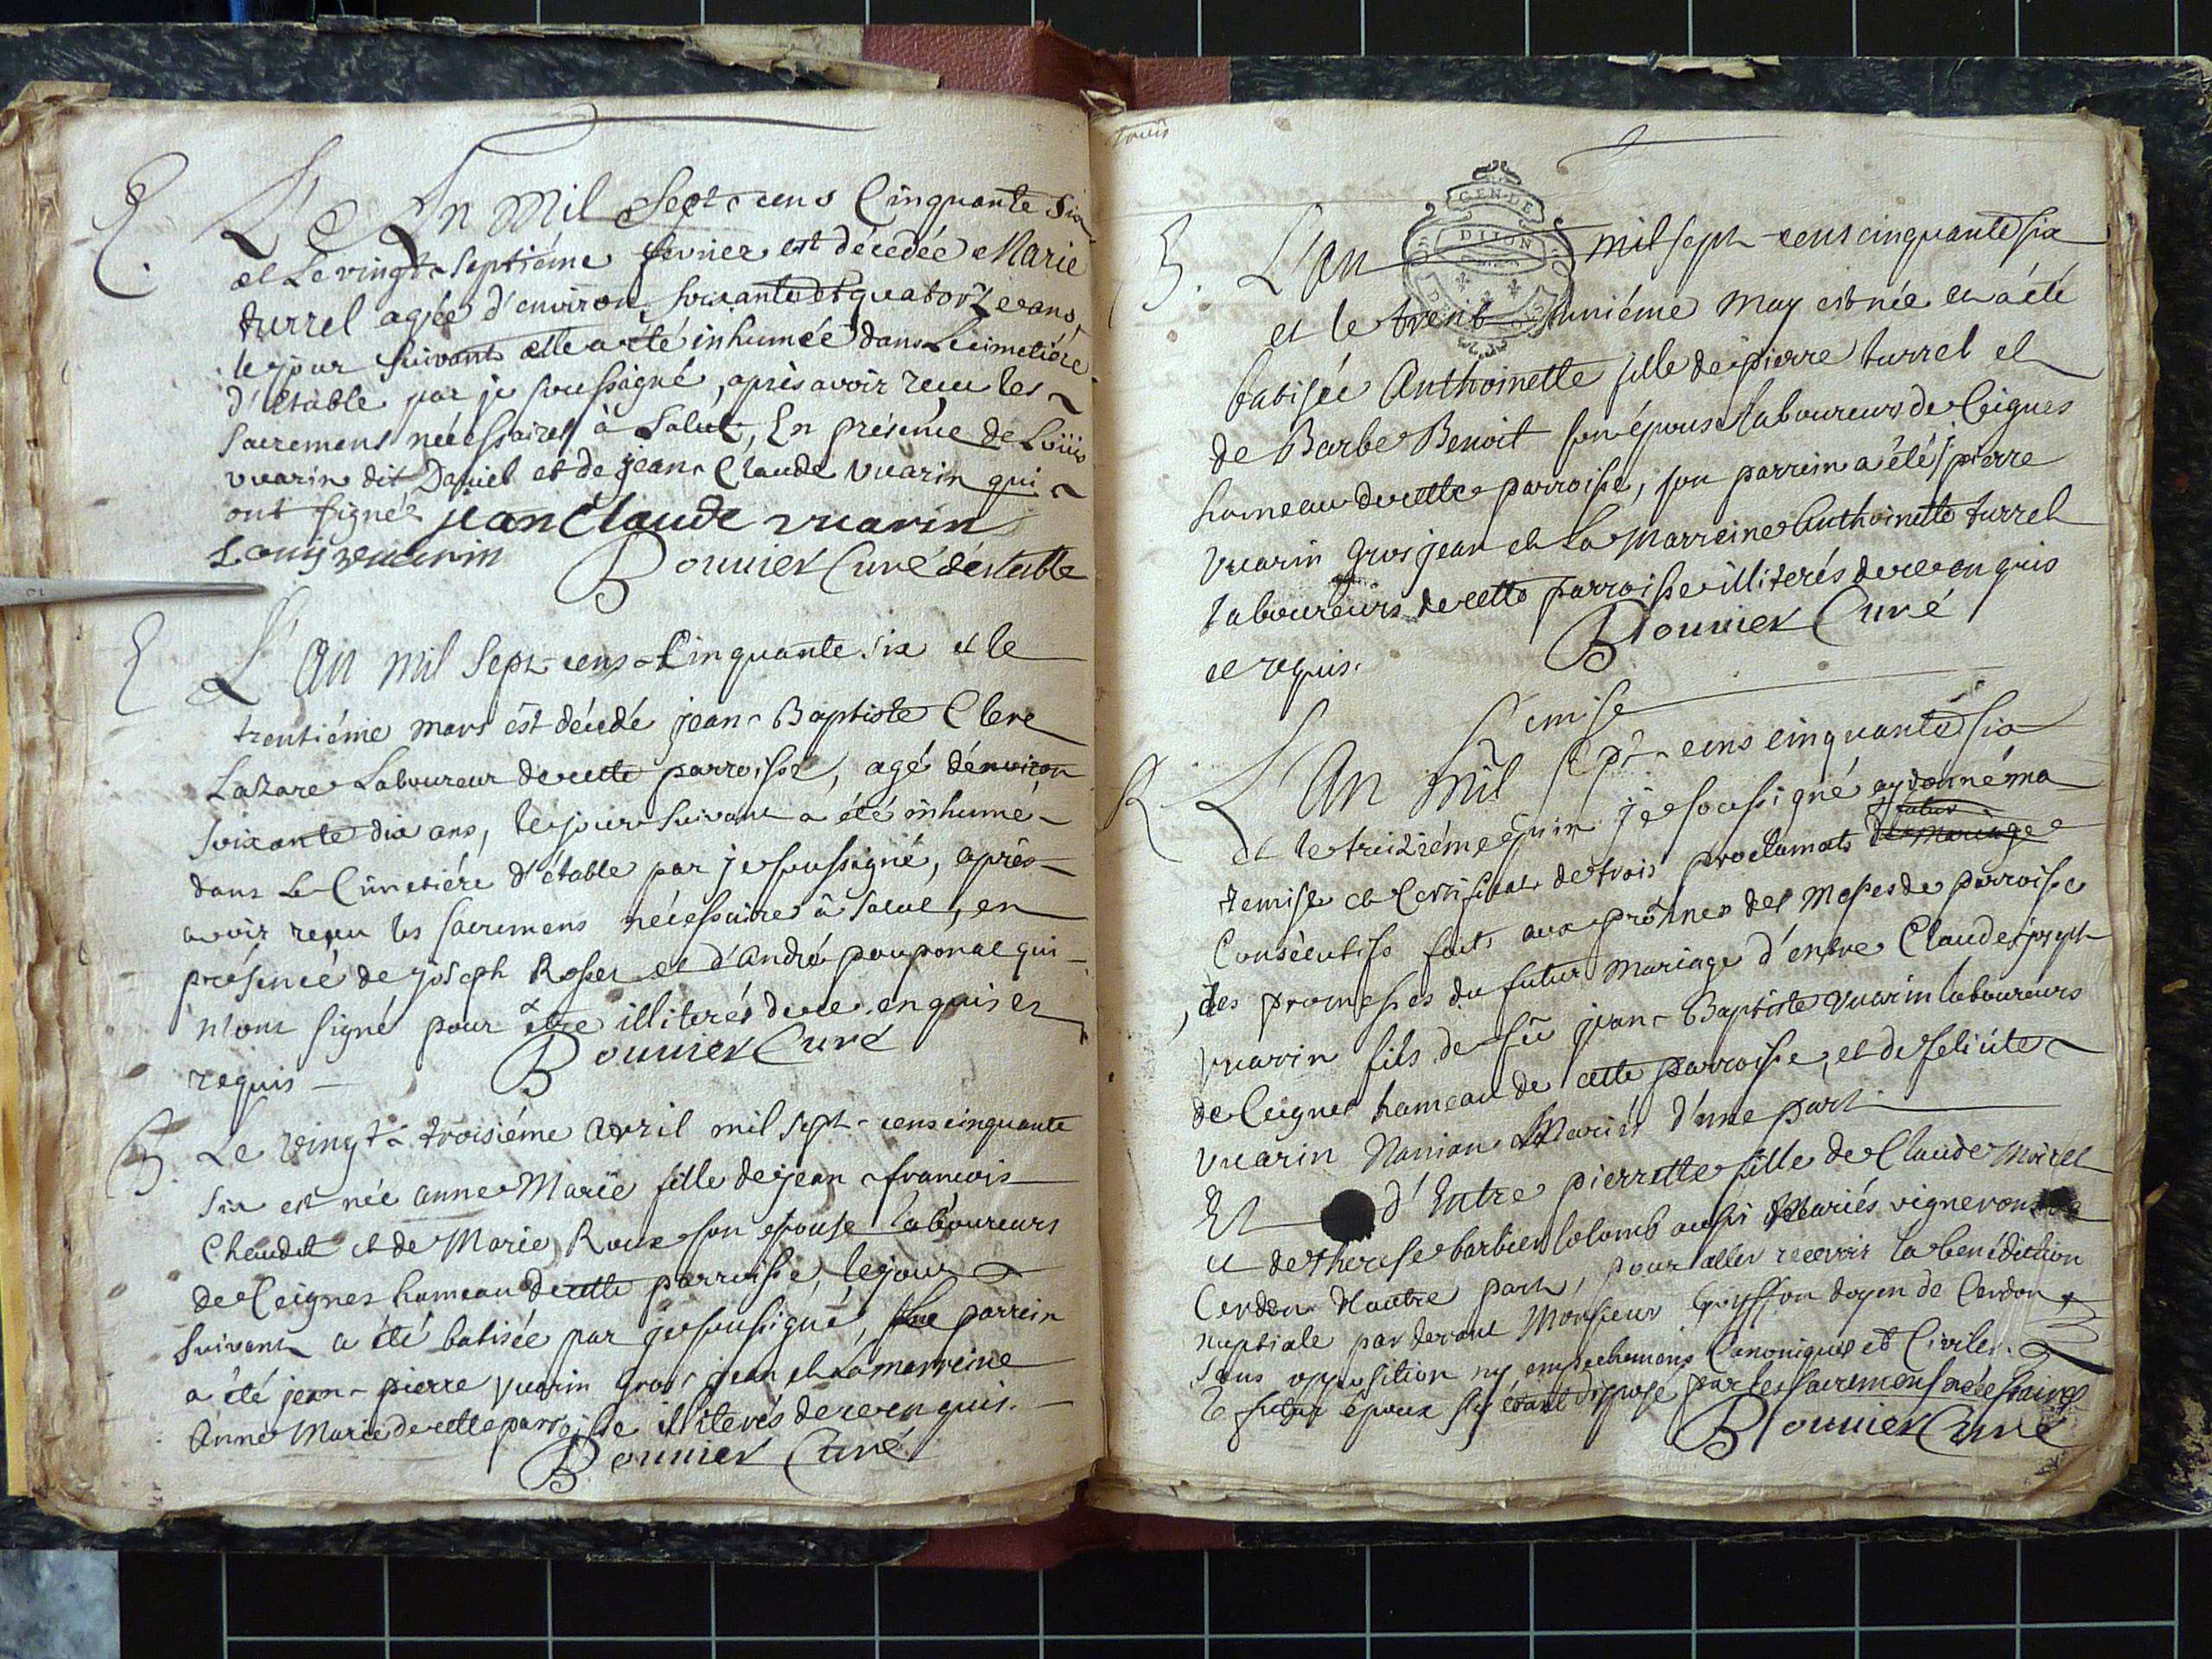 E. L'An Mil Sept-cens Cinquante Six
et Le vingt-Septiéme fevrier est décedée Marie
turrel agée d'environ soixante et quatorze ans,
le jour suivant elle a été inhumée dans Le cimetiére
d'étable par je soussigné, après avoir recu les
sacremens nécessaires à Salut, En présence de Loüis
vuarin dit Daniel et de jean-Claude Vuarin qui
ont signé jean Claude vuarin
Louis vuarin Bouvier Curé déstable
E L'An mil Sept-cens-Cinquante six et le
trentiéme mars est décedé jean-Baptiste Clerc
Lazare Laboureur de cette parroisse, agé d'environ
soixante dix ans, le jour suivant a été inhumé
dans Le Cimetiére d'étable par je soussigné, après
avoir reçu les sacremens nécessaire à Salut, en
présence de joseph Rosset et d'André pouponat qui
n'ont signé pour être illiterés de ce enquis et
requis Bouvier Curé
B. Le vingt-troisiéme Avril mil sept-cens cinquante
six est née anne Marie fille de jean-francois
Chaudet et de Marie Roux son épouse laboureurs
de Ceignes hameau de cette parroisse, le jour
suivant a été batisée par je soussigné, parrein
a été jean-pierre vuarin gros jean et La marreine
Anne Marie de cette parroisse illiterés de ce enquis.
Bouvier Curé
GEN DE
DIJON
B. L'An mil sept-cens cinquante six
et le trent-uniéme May est née et a été
batisée Anthoinette fille de pierre turrel et
de Barbe Benoit son épouse laboureurs de Ceignes
hameau de cette parroisse, son parrein a été pierre
Vuarin Gros jean et La Marreine Anthoinette turrel
laboureurs de cette parroisse illiterés de ce enquis
et requis. Bouvier Curé
Remise
R. L'An mil sept-cens cinquante six
et le treiziéme juin je soussigné ay donné ma
remise et Certificat de trois proclamats de Mariage
Consécutifs faits aux prônes des Messes de parroisse
des promesses du futur Mariage d'entre Claude joseph
Vuarin fils de fû jean-Baptiste vuarin laboureurs
de Ceignes hameau de cette parroisse, et de felicité
vuarin Mariés d'une part
Et d'Entre pierrette fille de Claude Moirel
et de therese barbier Colomb aussi Mariés vignerons de
Cerdon d'autre part, pour aller recevoir la benédiction
nuptiale par devant Monsieur Goyffon doyen de Cerdon
sans opposition ny empechemens Canoniques et Civiles.
le futur époux s'y étant disposé par les sacremens nécessaires
Bouvier Curé